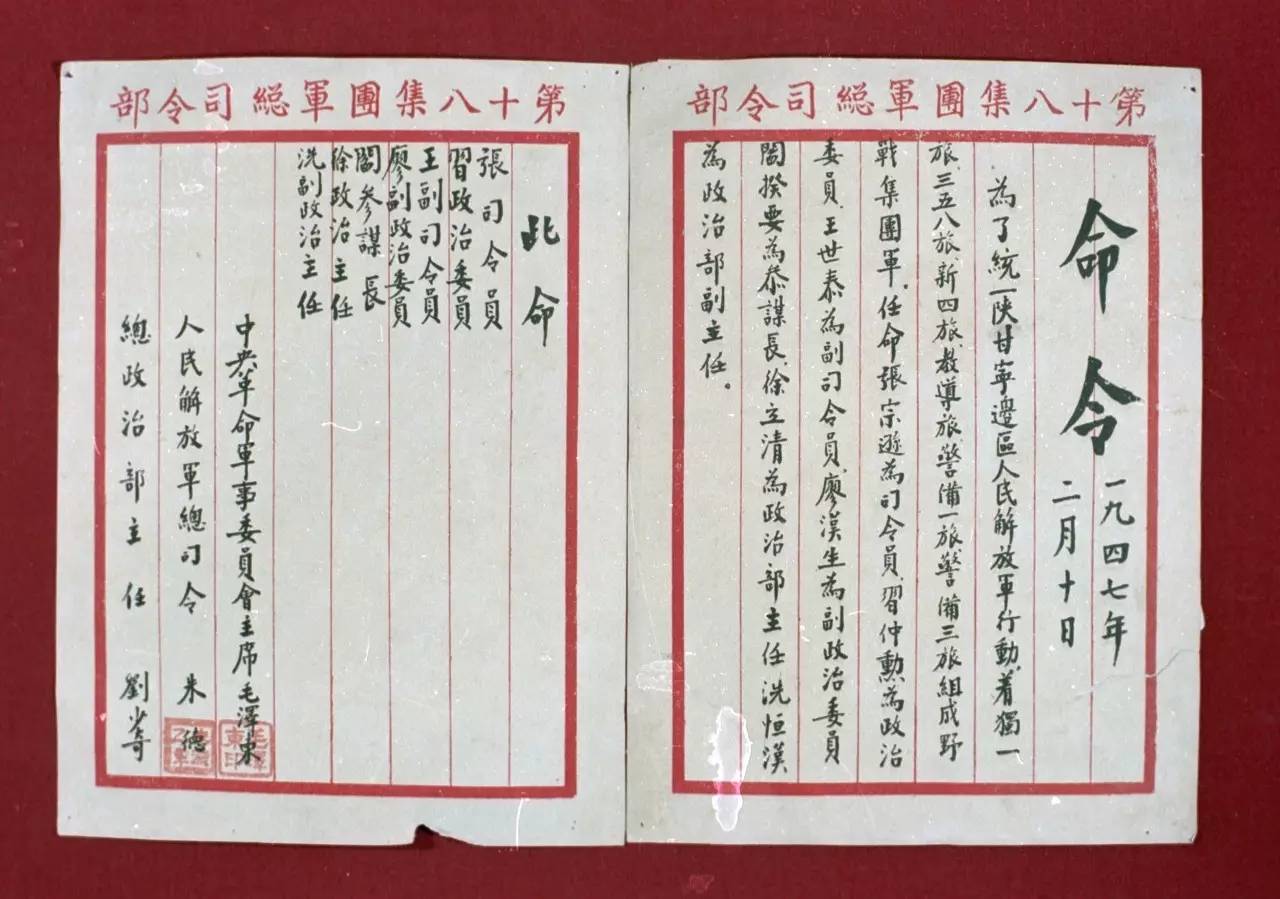 第十八集團軍総司令部
命令
一九四七年
二月十日
為了統一陝甘寧邊區人民解放軍行動，着獨一
旅、三五八旅、新四旅、教導旅、警備一旅、警備三旅組成野
戰集團軍。任命張宗遜為司令員、習仲勳為政治
委員、王世泰為副司令員、廖漢生為副政治委員、
閻揆要為叅謀長、徐立清為政治部主任、洗恒漢
為政治部副主任。
第十八集團軍総司令部
此命
張司令員
習政治委員
王副司令員
廖副政治委員
閻參謀長
徐政治主任
洗副政治主任
中央革命軍事委員會主席毛澤東
人民解放軍總司令 朱德
總政治部主任 劉少奇